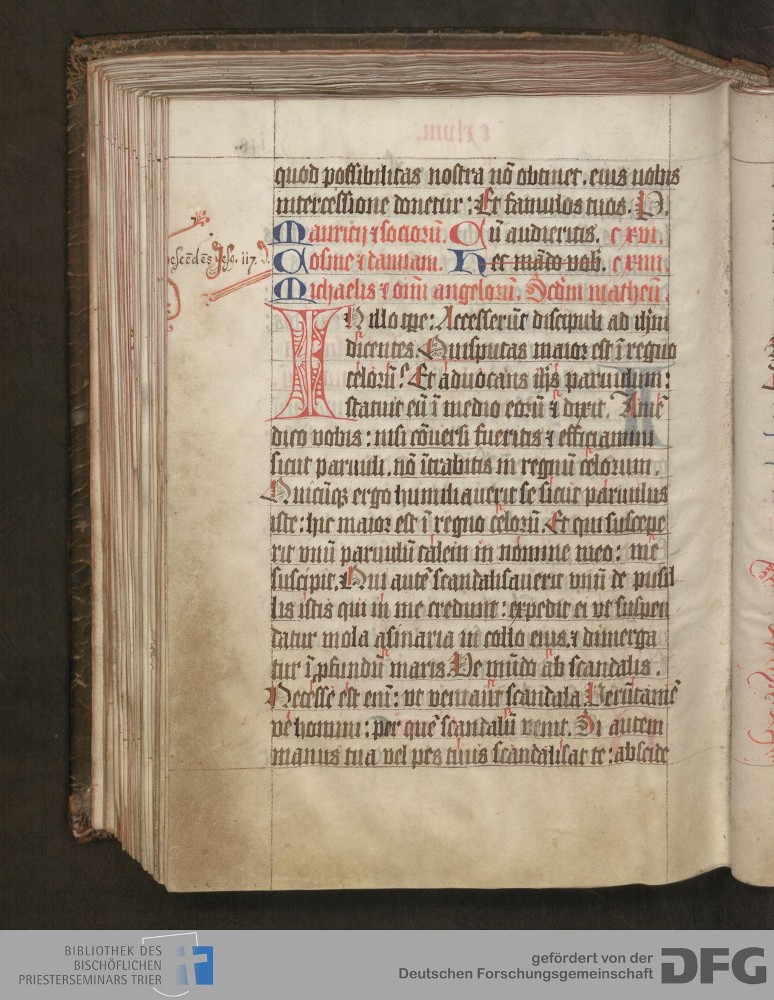 quod possibilitas nostra nō obtinet. eius nobis
intercessione donetur: Et famulos tuos. P.
Mauricij ⁊ sociorū. Cū audieritis. cxvi.
descēdēs Jesꝰ. 117.
Cosme ⁊ damiani. Hec mādo vob̄. cxiiii.
Michaelis ⁊ oīm angelorū. Scd̄m matheū.
IN illo tp̄e: Accesserūt discipuli ad ih̄m
dicentes. Quisputas maior est ī regno
celorū? Et aduocans ih̄s paruulum:
statuit eū ī medio eorū ⁊ dixit. Amē
dico vobis: nisi cōuersi fueritis ⁊ efficiamini
sicut paruuli. nō ītrabitis in regnū celorum.
Quicūqꝫ ergo humiliauerit se sicut paruulus
iste: hic maior est ī regno celorū. Et qui suscepe
rit vnū paruulū talem in nomine meo: me
suscipit. Qui autē scandalisauerit vnū de pusil
lis istis qui in me credunt: expedit ei vt suspen
datur mola asinaria in collo eius. ⁊ dimerga
tur ī ꝓfundū maris. Ve mūdo ab scandalis.
Necesse est enī: vt veniant scandala. Verūtamē
ve homini: per quē scandalū venit. Si autem
manus tua vel pes tuus scandalisat te: abscide
BIBLIOTHEK DES
BISCHÖFLICHEN
PRIESTERSEMINARS TRIER
gefördert von der
Deutschen Forschungsgemeinschaft
DFG